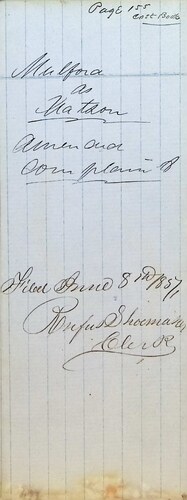 Page 155
Cost Book
Mulford
vs
Watson
Amended
Complaint
Filed June 8th 1857
Rufus Shoemaker
Clerk